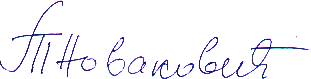 ТНоваковић